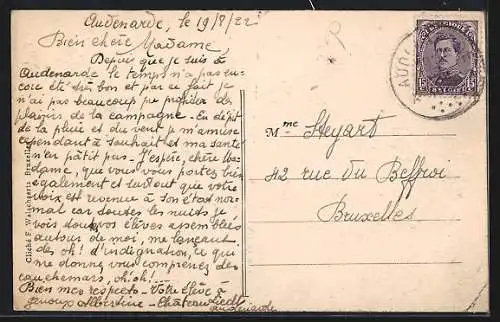 Audenarde, le 19/8/22
Bien chère Madame
Depuis que je suis à
Audenarde le temps n'a pas en-
core été très bon et par ce fait je
n'ai pas beaucoup pu profiter des
plaisirs de la campagne - En dépit
de la pluie et du vent je m'amuse
cependant à souhait et ma santé
n'en pâtit pas - J'espère, chère Ma-
dame, que vous vous portez bien
également et surtout que votre
voix est revenue à son état nor-
mal car toutes les nuits je
vois vos élèves assemblées
autour de moi, me lançant
des oh! d'indignation, ce qui
me donne, vous comprenez, des
cauchemars, oh! oh!
Bien mes respects - Votre élève à
genoux Albertine - Château Liedts
Audenarde
Cliché F. Walschaerts Bruxelles
BELGIQUE
15 15
BELGIË
Mme Heyart
42 rue du Beffroi
Bruxelles